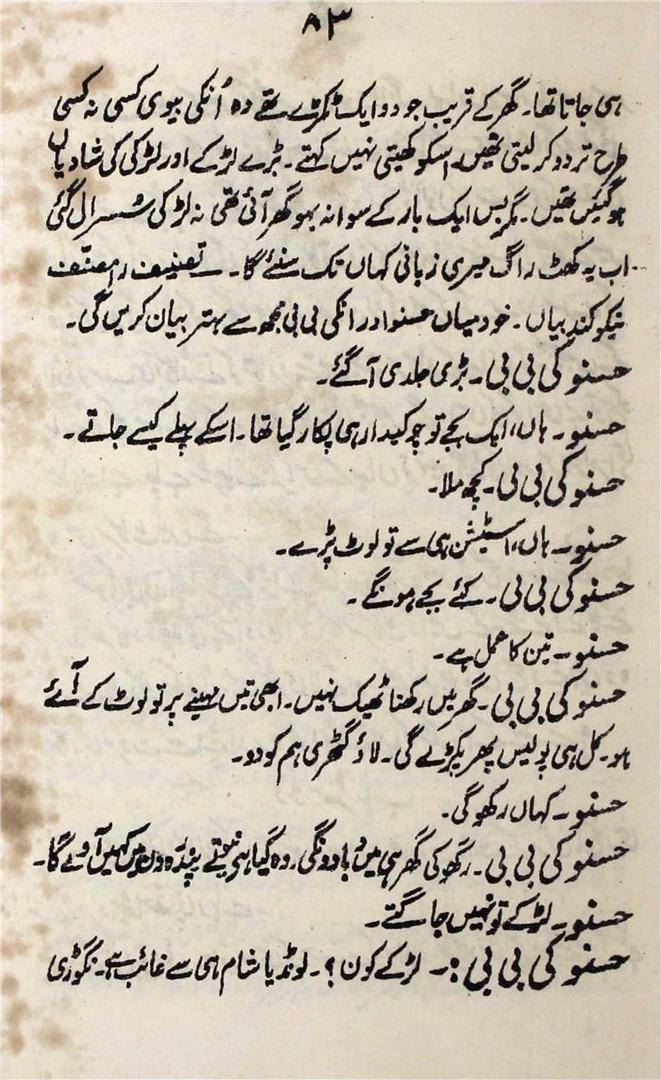 ۸۳
ہی جاتا تھا۔ گھر کے قریب جو دو ایک ٹکڑے تھے وہ اُنکی بیوی کسی نہ کسی
طرح تردد کر لیتی تھیں۔ اسکو کھیتی نہیں کہتے۔ بڑے لڑکے اور لڑکی کی شادیاں
ہو گئیں تھیں۔ مگر بس ایک بار کے سوا نہ بہو گھر آئی تھی نہ لڑکی سُسرال گئی
اب یہ کھٹ راگ میری زبانی کہاں تک سنئے گا۔ تصنیف را مصنف
نیکو کند بیاں۔ خود میاں حسنو اور انکی بی بی مجھ سے بہتر بیان کریں گی۔
حسنو کی بی بی۔ بڑی جلدی آ گئے۔
حسنو۔ ہاں، ایک بجے تو چوکیدار ہی پکار گیا تھا۔ اسکے پہلے کیسے جاتے۔
حسنو کی بی بی۔ کچھ ملا۔
حسنو۔ ہاں، اسٹیشن ہی سے تو لوٹ پڑے۔
حسنو کی بی بی۔ کئے بجے ہونگے۔
حسنو۔ تین کا عمل ہے۔
حسنو کی بی بی۔ گھر میں رکھنا ٹھیک نہیں۔ ابھی تیں مہینے پر تو لوٹ کے آئے
ہو۔ کل ہی پولیس پھر پکڑے گی۔ لاؤ گٹھری ہم کو دو۔
حسنو۔ کہاں رکھو گی۔
حسنو کی بی بی۔ رگھو کی گھر ہی میں دبا دونگی۔ وہ گیا ہی نیوتے پندرہ دن میں کہیں آوے گا۔
حسنو۔ لڑکے تو نہیں جاگتے۔
حسنو کی بی بی :۔ لڑکے کون ؟۔ لونڈیا شام ہی سے غائب ہے۔ نگوڑی